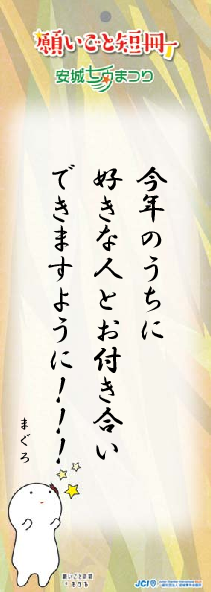 願いごと短冊
安城七夕まつり
今年のうちに
好きな人とお付き合い
できますように!!!
まぐろ
JCI